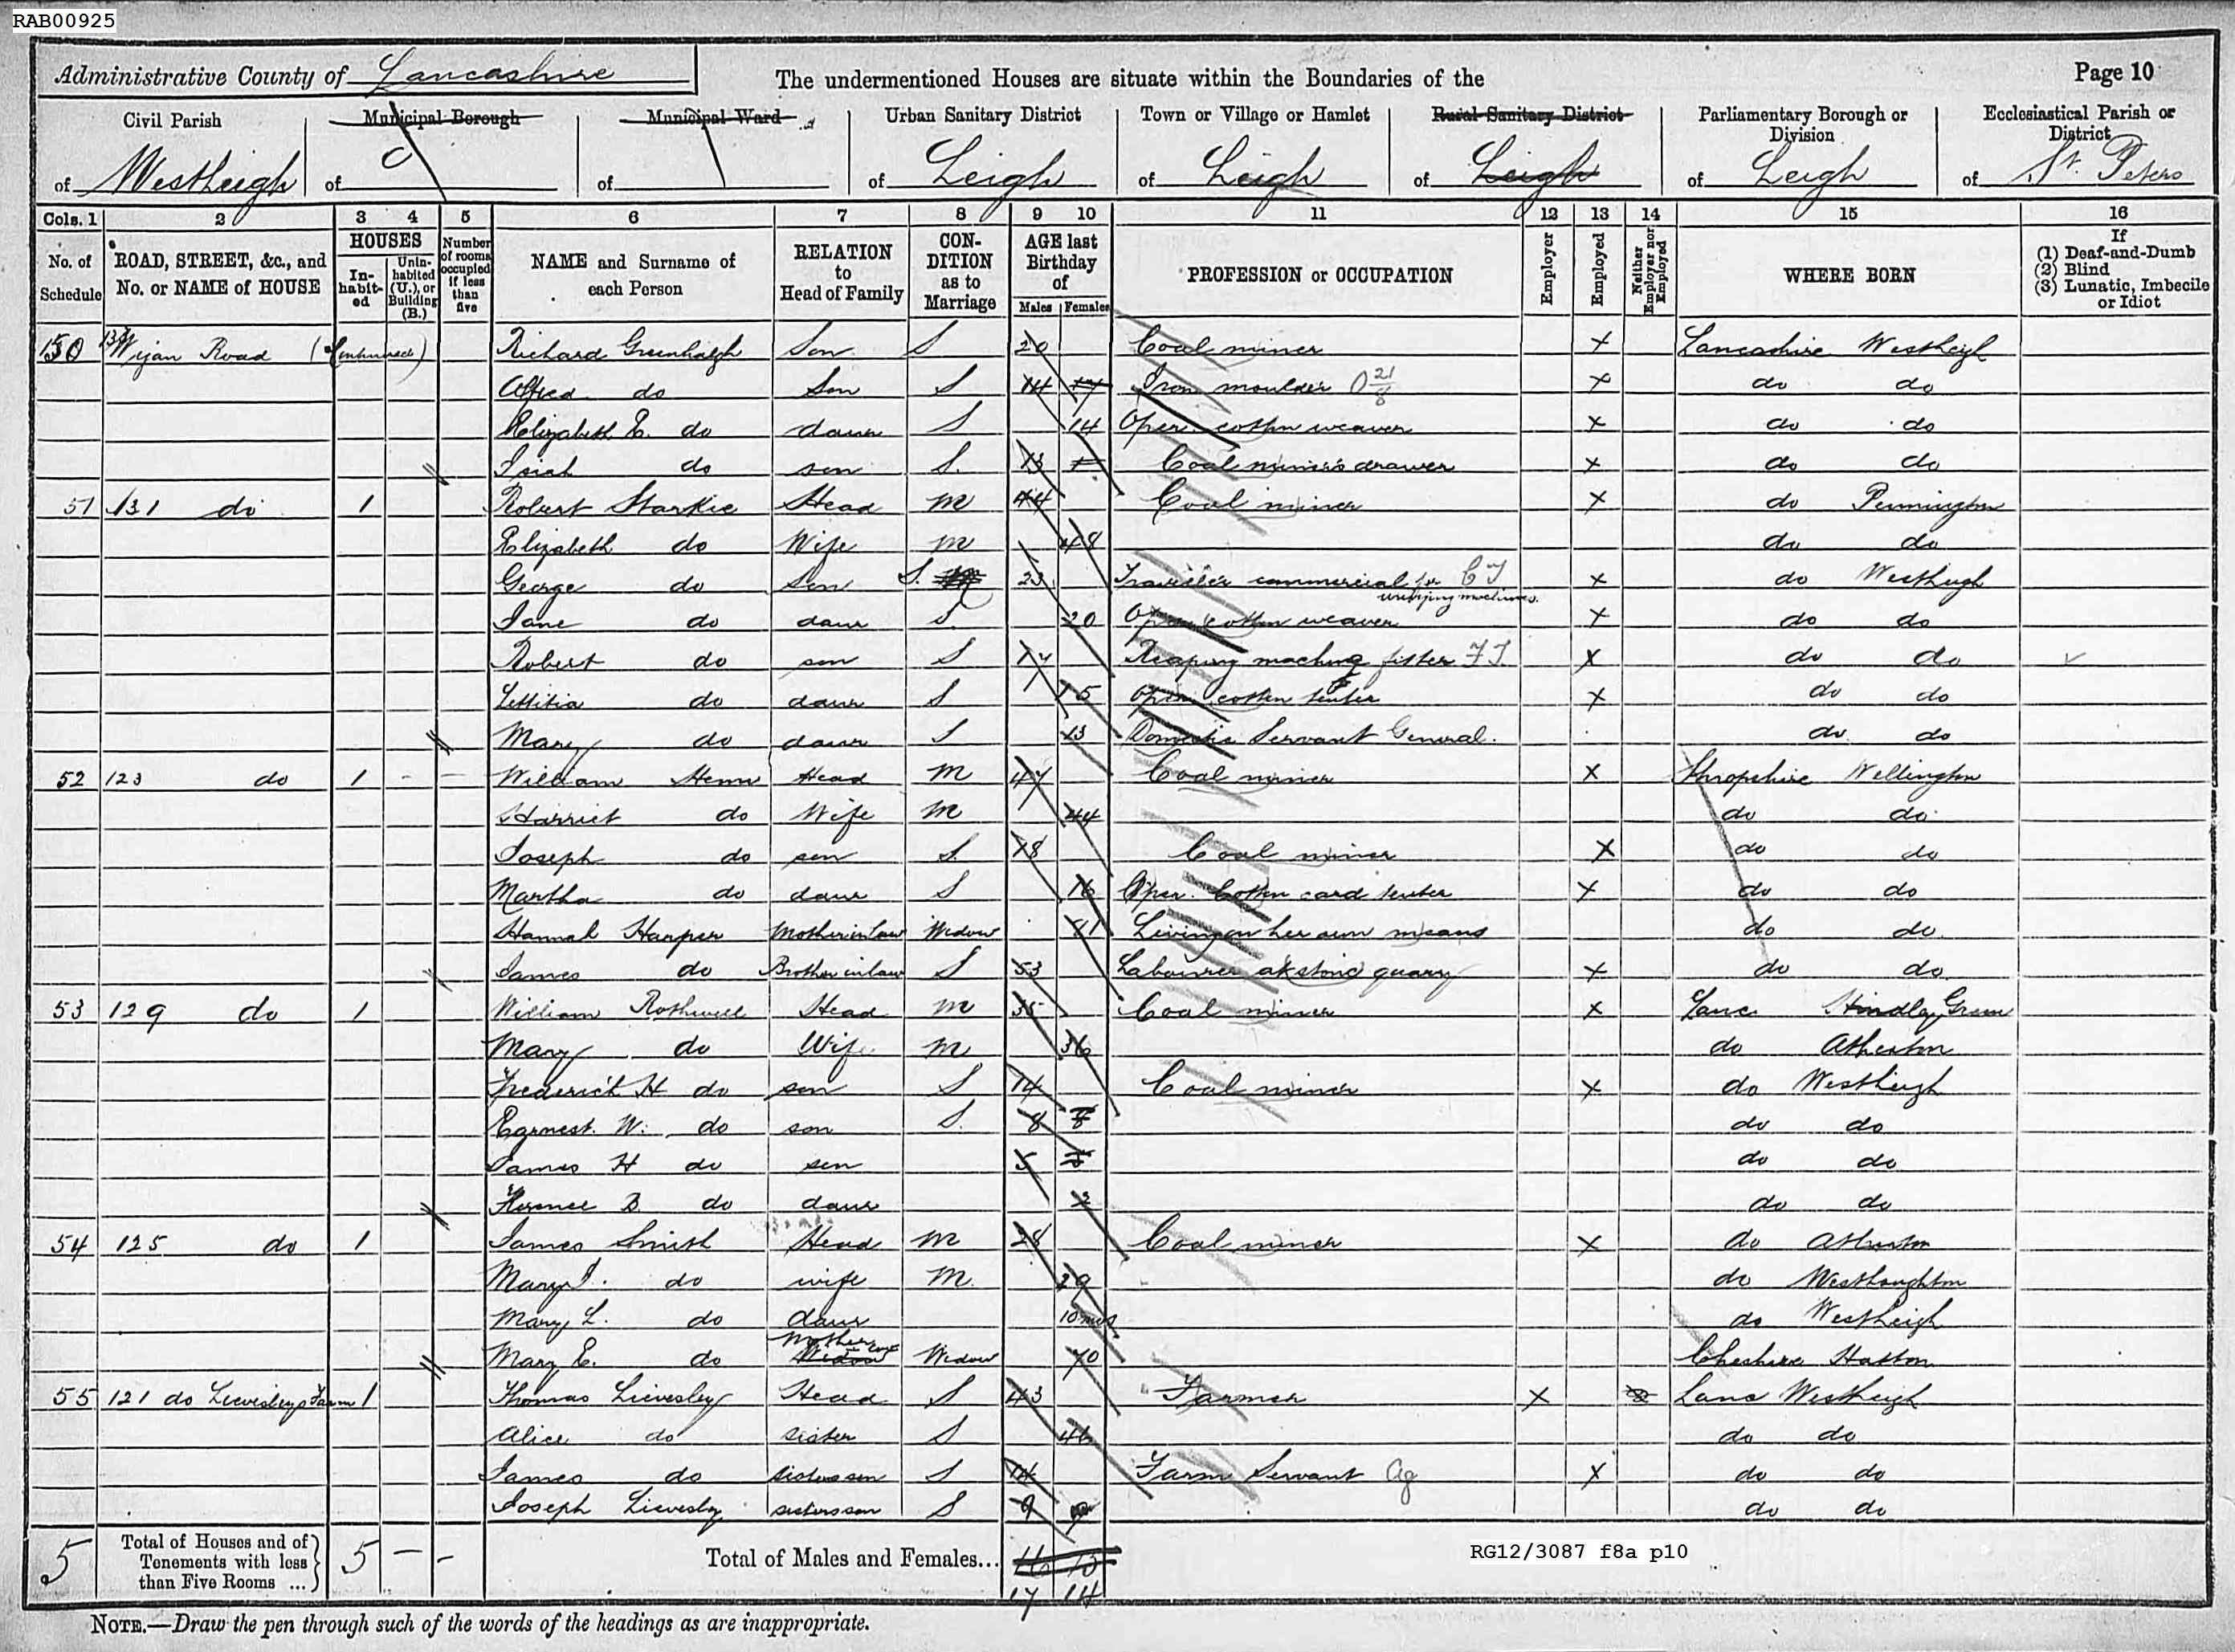 RAB00925
Administrative County of Lancashire The undermentioned Houses are situate within the Boundaries of the Page 10
Civil Parish Municipal Borough Municipal Ward Urban Sanitary District Town or Village or Hamlet Rural Sanitary District Parliamentary Borough or Division Ecclesiastical Parish or District
of Westleigh of of of Leigh of Leigh of Leigh of Leigh of St. Peters
Cols. 1 2 3 4 5 6 7 8 9 10 11 12 13 14 15 16
No. of Schedule ROAD, STREET, &c., and No. or NAME of HOUSE HOUSES Inhabited Uninhabited (U.), or Building (B.) Number of rooms occupied if less than five NAME and Surname of each Person RELATION to Head of Family CONDITION as to Marriage AGE last Birthday of Males Females PROFESSION or OCCUPATION Employer Employed Neither Employer nor Employed WHERE BORN If (1) Deaf-and-Dumb (2) Blind (3) Lunatic, Imbecile or Idiot
50 Wigan Road (Continued) Richard Greenhalgh Son S 20 Coal miner X Lancashire Westleigh
Alfred do Son S 14 17 Iron moulder X do do
Elizabeth E. do daur S 14 Oper. cotton weaver X do do
do son S. 13 Coal miner's drawer X do do
51 131 do 1 Robert Starkie Head M 44 Coal miner X do Pennington
Elizabeth do Wife M 48 do do
George do Son S. 23 Traveller commercial for C T wringing machines. X do Westleigh
Jane do daur S. 20 Oper. cotton weaver X do do
Robert do son S 17 Reaping machine fitter F T. X do do
Lettitia do daur S 15 Oper. cotton tenter X do do
Mary do daur S 13 Domestic Servant General. do do
52 123 do 1 - - William Head M 47 Coal miner X Shropshire Wellington
Harriet do Wife M 44 do do
Joseph do son S. 18 Coal miner X do do
Martha do daur S 16 Oper. Cotton card tenter X do do
Hannah Harper Mother in law Widow 81 Living on her own means do do
James do Brother in law S 53 Labourer at stone quarry X do do
53 129 do 1 William Rothwell Head M 35 Coal miner X Lanc. Hindley Green
Mary do Wife M 36 do Atherton
Frederick H do son S 14 Coal miner X do Westleigh
Earnest. W. do son S. 8 8 do do
James H do son 5 5 do do
Florence B. do daur 2 do do
54 125 do 1 James Smith Head M 28 Coal miner X do Atherton
Mary J. do wife M. 29 do Westhoughton
Mary L. do daur 10 mos do Westleigh
Mary E. do Mother Widow Widow 70 Cheshire Hatton
55 121 do Lievesleys Farm 1 Thomas Lievesley Head S 43 Farmer X Lanc Westleigh
Alice do sister S 46 do do
James do sisters son S 14 Farm Servant Ag X do do
Joseph Lievesley sisters son S 9 9 do do
5 Total of Houses and of Tenements with less than Five Rooms ... 5 - - Total of Males and Females... 16 15
17 14
RG12/3087 f8a p10
NOTE.—Draw the pen through such of the words of the headings as are inappropriate.